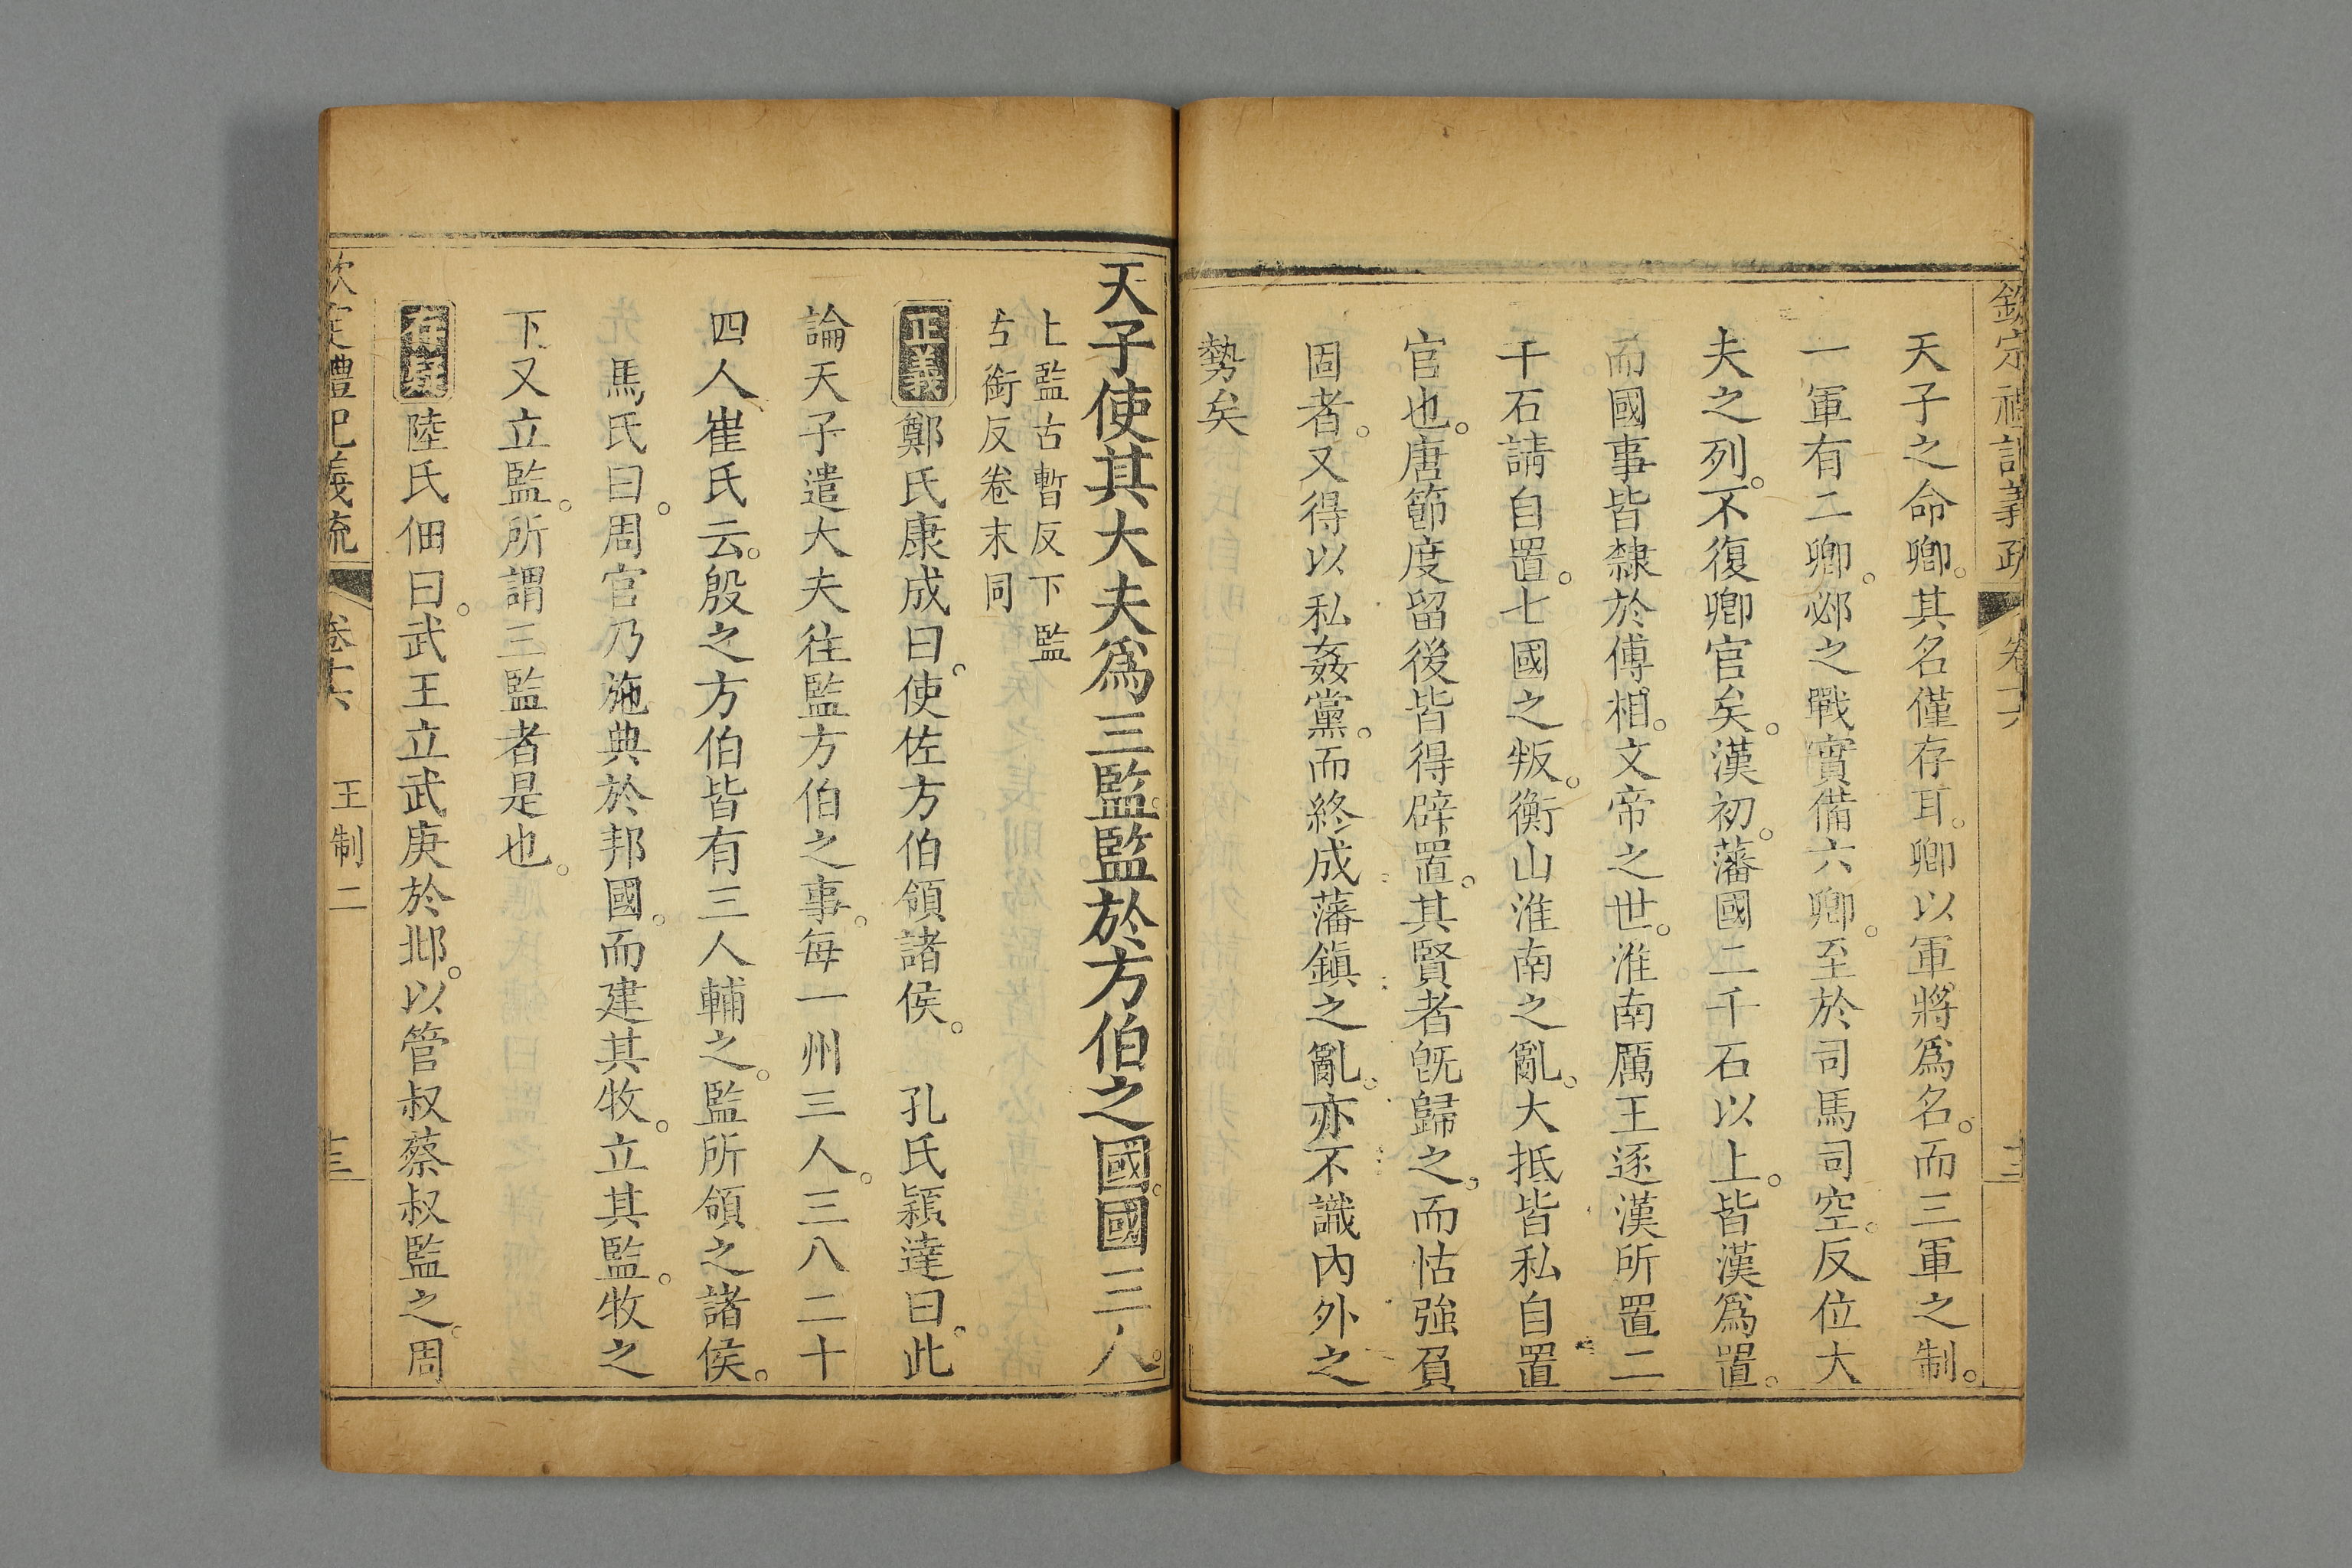 欽定禮記義疏 卷十六 十二
天子之命卿。其名僅存耳。卿以軍將爲名。而三軍之制。
一軍有二卿。邲之戰實備六卿。至於司馬司空。反位大
夫之列。不復卿官矣。漢初。藩國二千石以上。皆漢爲置。
而國事皆隸於傅相。文帝之世。淮南厲王逐漢所置二
千石請自置。七國之叛。衡山淮南之亂。大抵皆私自置
官也。唐節度留後皆得辟置。其賢者旣歸之。而怙強負
固者。又得以私姦黨。而終成藩鎭之亂。亦不識內外之
勢矣
天子使其大夫爲三監。監於方伯之國。國三人。
上監古暫反下監
古銜反卷末同
正義 鄭氏康成曰。使佐方伯領諸侯。 孔氏穎達曰。此
論天子遣大夫往監方伯之事。每一州三人。三八二十
四人。崔氏云。殷之方伯皆有三人輔之。監所領之諸侯。
馬氏曰。周官乃施典於邦國。而建其牧。立其監。牧之
下又立監。所謂三監者是也。
存異 陸氏佃曰。武王立武庚於邶。以管叔蔡叔監之。周
欽定禮記義疏 卷十六 王制二